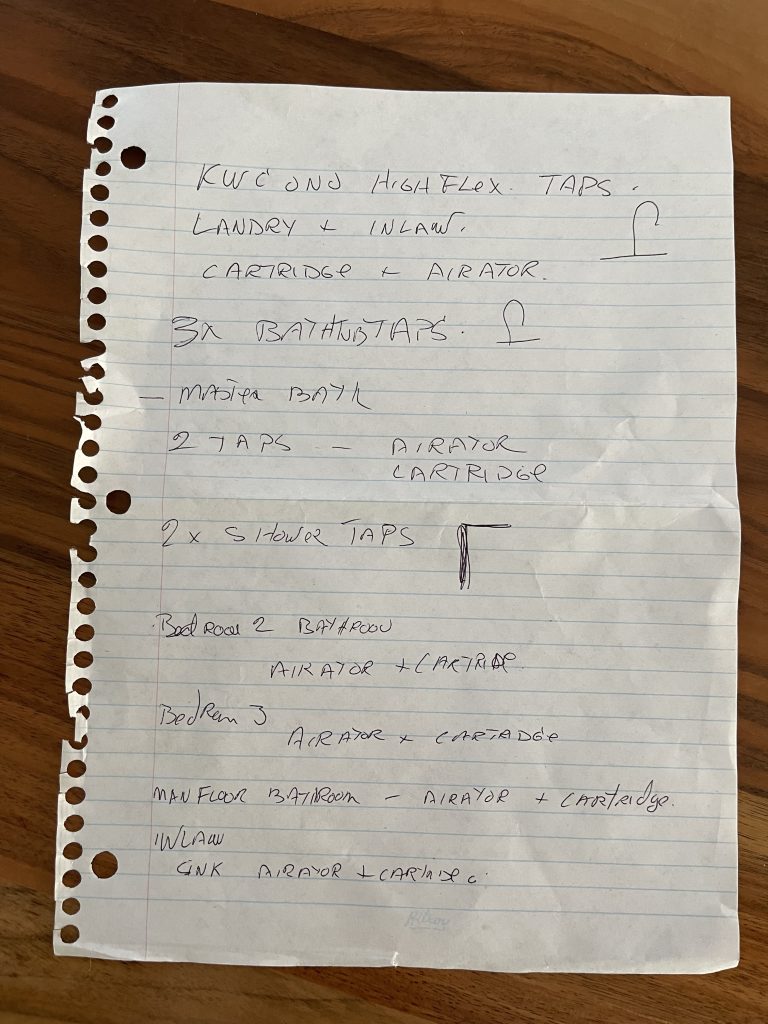 KWC ONO HIGHFLEX. TAPS.
LANDRY + INLAW.
CARTRIDGE + AIRATOR.
3x BATHTUBTAPS.
- MASTER BATH
2 TAPS - AIRATOR
CARTRIDGE
2x SHOWER TAPS
Bedroom 2 BATHROOM
AIRATOR + CARTRIDGE.
BedRoom 3
AIRATOR + CARTRIDGE
MAN FLOOR BATHROOM - AIRATOR + CARTRIDGE.
INLAW
SINK AIRATOR + CARTRIDGE.
Hilroy